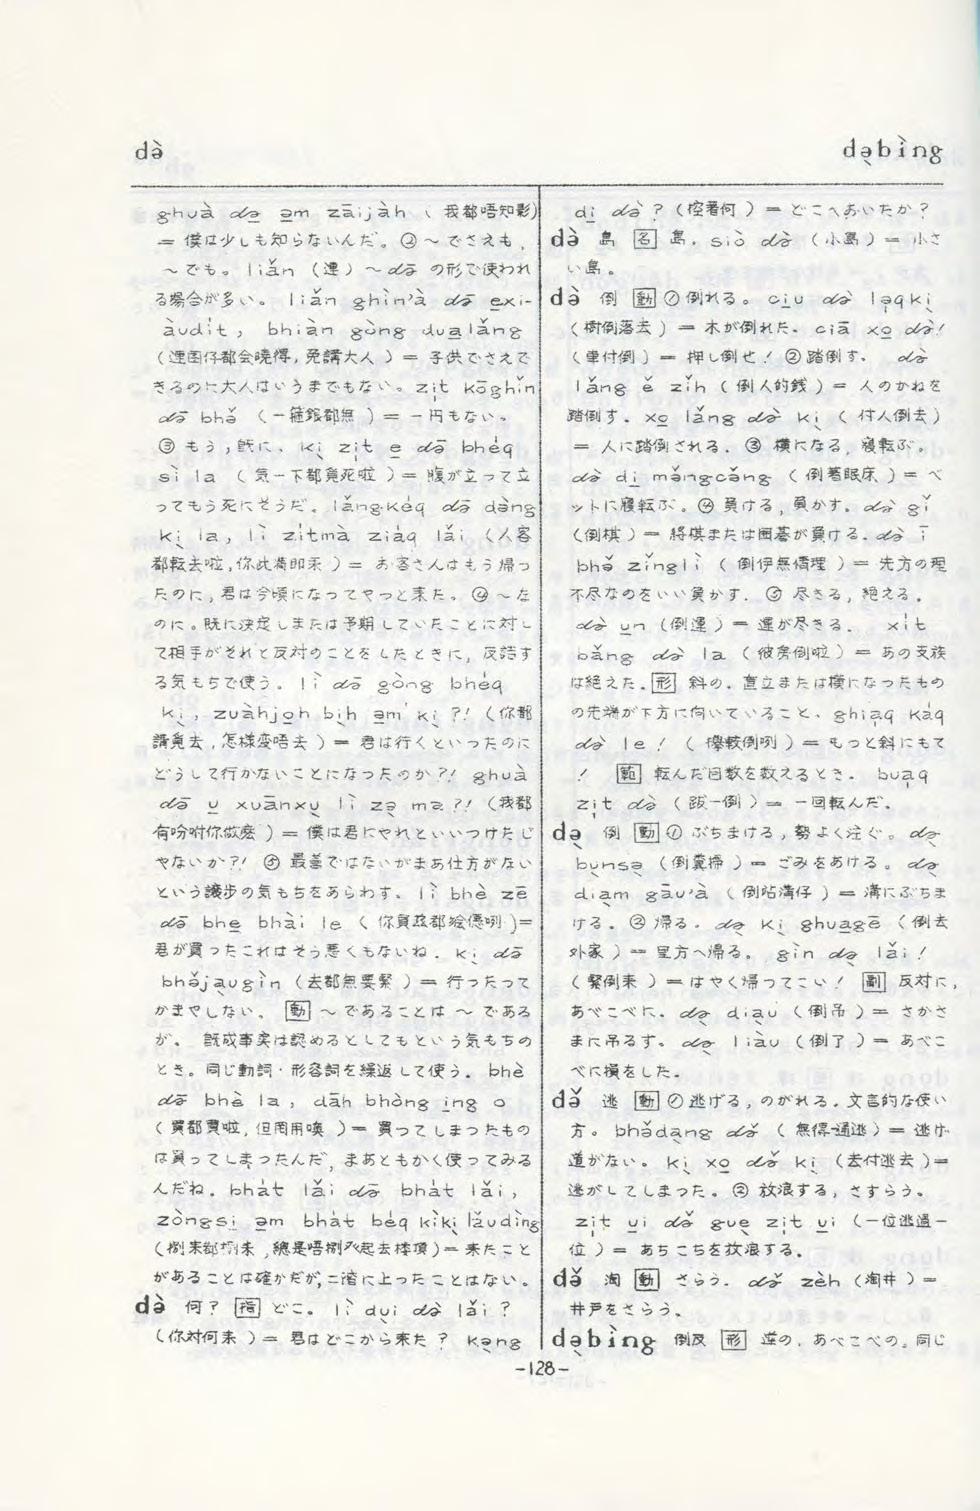 də̀
də̣bìng
ghuà də̄ ə̱m zāijàh (我都唔知影)
= 僕は少しも知らないんだ。② ～でさえも,
～でも。liǎn (連) ～də̄ の形で使われ
る場合が多い。liǎn ghìn'à də̄ e̱xi-
àudit, bhiàn gòng dua̱lǎng
(連囝仔都会曉得, 免講大人) = 子供でさえで
きるのに大人はいうまでもない。zi̍t kōghǐn
də̄ bhə̌ (一箍銀都無) = 一円もない。
③ もう, 既に. kì zi̍t e̱ də̄ bhéq
sì la (気一下都覓死啦) = 腹が立って立
ってもう死にそうだ。lǎngkéq də̄ dàng
kì la, lì zítmà ziáq lǎi (人客
都転去啦, 你此満即来) = お客さんはもう帰っ
たのに, 君は今頃になってやっと来た。④ ～た
のに。既に決定しまたは予期していたことに対し
て相手がそれと反対のことをしたときに, 反詰す
る気もちで使う. lì də̄ gòng bhéq
kì, zuàhjo̱h bìh ə̱m' kì ?! (你都
講覓去, 怎様変唔去) = 君は行くといったのに
どうして行かないことになったのか?! ghuà
də̄ u̱ xuānxù lì zə̣ ma ?! (我都
有吩咐你做麽) = 僕は君にやれといいつけたじ
ゃないか?! ⑤ 最善ではないがまあ仕方がない
という譲歩の気もちをあらわす. lì bhè zē
də̄ bhe̱ bhài le (你買玆都袂僫咧)=
君が買ったこれはそう悪くもないね. kì də̄
bhə̌jàugìn (去都無要緊) = 行ったって
かまやしない。動 ～であることは～である
が。 既成事実は認めるとしてもという気もちの
とき。同じ動詞・形容詞を繰返して使う. bhè
də̄ bhè la, dāh bhòng i̱ng o
(買都買啦, 但罔用喚) = 買ってしまったもの
は買ってしまったんだ, まあともかく使ってみる
んだね. bhát lǎi də̄ bhát lǎi,
zòngsi̱ ə̱m bhát béq kìkì lǎudìng
= 来たこと
があることは確かだが, 二階に上ったことはない。
də̀ 何? 指 どこ。lì dùi də̀ lǎi ?
(你対何来) = 君はどこから来た? kə̣ng
di̱ də̀ ? (控着何) = どこへおいたか?
də̀ 島 名 島. siò də̀ (小島) = 小さ
い島。
də̀ 倒 動 ① 倒れる。ciu̱ də̀ la̍qkì
(樹倒落去) = 木が倒れた. ciā xo̱ də̀!
(車付倒) = 押し倒せ! ② 踏倒す. də̀
lǎng ě zǐh (倒人的銭) = 人のかねを
踏倒す. xo̱ lǎng də̀ kì (付人倒去)
= 人に踏倒される. ③ 横になる, 寝転ぶ.
də̀ di̱ mə̌ngcǎng (倒着眠床) = ベ
ットに寝転ぶ. ④ 負ける, 負かす. də̀ gǐ
(倒棋) = 将棋または囲碁が負ける. də̀ ī
bhə̌ zǐnglì (倒伊無情理) = 先方の理
不尽なのをいい負かす. ⑤ 尽きる, 絶える.
də̀ u̱n (倒運) = 運が尽きる. xi̍t
bǎng də̀ la (彼房倒啦) = あの支族
は絶えた. 形 斜の. 直立または横になったもの
の先端が下方に向いていること. ghia̍q káq
də̀ le! (攑較倒咧) = もっと斜にもて
! 範 転んだ回数を数えるとき. bua̍q
zi̍t də̀ (跋一倒) = 一回転んだ.
də̣ 倒 動 ① ぶちまける, 勢よく注ぐ。də̣
bu̱nsə̣ (倒糞掃) = ごみをあける。də̣
diàm gāu'à (倒坫溝仔) = 溝にぶちま
ける. ② 帰る. də̣ kì ghua̱gē (倒去
外家) = 里方へ帰る。gìn də̣ lǎi!
(緊倒来) = はやく帰ってこい! 副 反対に,
あべこべに. də̣ diàu (倒吊) = さかさ
まに吊るす. də̣ liàu (倒了) = あべこ
べに損をした.
də̌ 逃 動 ① 逃げる, のがれる. 文言的な使い
方。bhə̌dàng də̌ (無得通逃) = 逃げ
道がない. kì xo̱ də̌ kì (去付逃去)=
逃がしてしまった。② 放浪する, さすらう。
zi̍t u̱i də̌ guè zi̍t u̱i (一位逃過一
位) = あちこちを放浪する.
də̌ 淘 動 さらう. də̌ zèh (淘井) =
井戸をさらう。
də̣bìng 倒反 形 逆の, あべこべの. 同じ
-128-